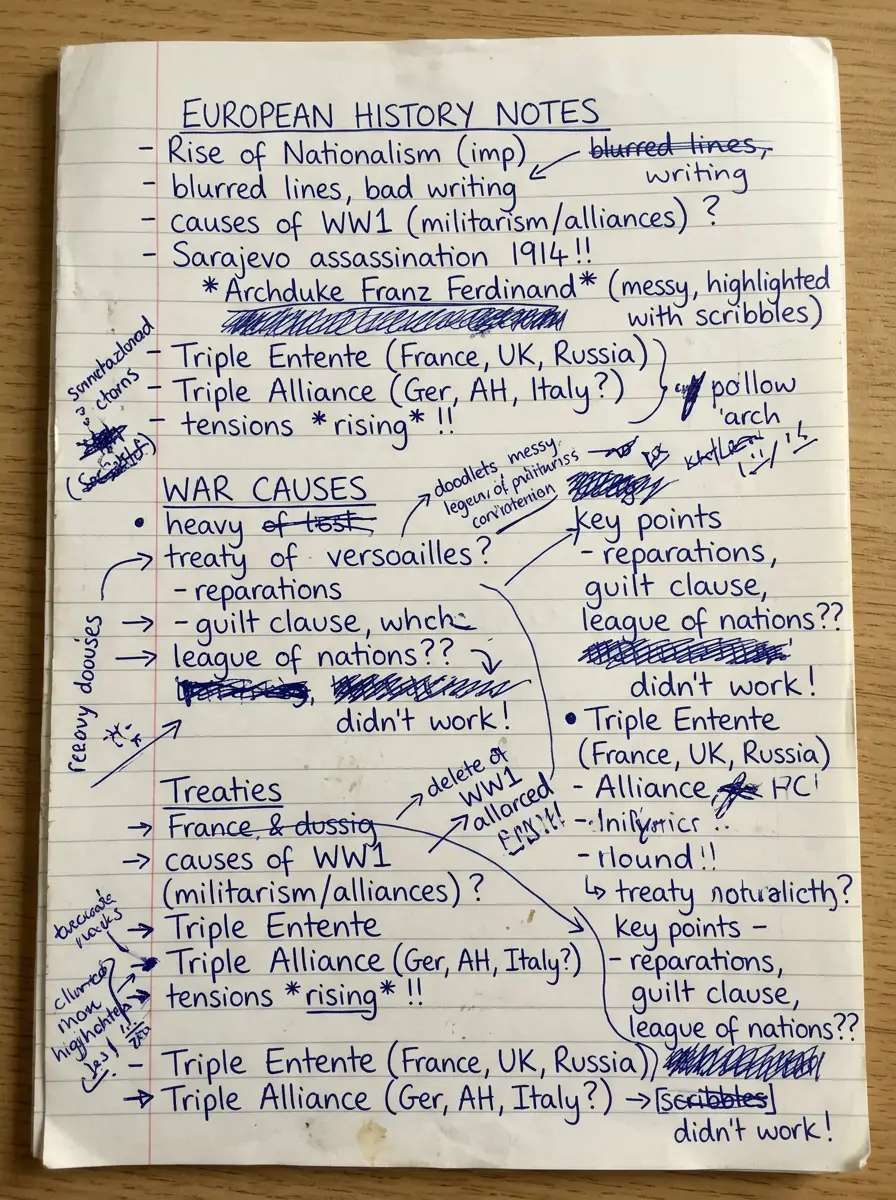 EUROPEAN HISTORY NOTES
- Rise of Nationalism (imp)
blurred lines,
writing
- blurred lines, bad writing
- causes of WW1 (militarism/alliances) ?
- Sarajevo assassination 1914!!
*Archduke Franz Ferdinand* (messy, highlighted
with scribbles)
- Triple Entente (France, UK, Russia)
- Triple Alliance (Ger, AH, Italy?)
- tensions *rising* !!
pollow
arch
WAR CAUSES
doodlets, messy
• heavy of tost,
treaty of versoailles?
- reparations
→ - guilt clause,
→ league of nations??
didn't work!
key points
- reparations,
guilt clause,
league of nations??
didn't work!
• Triple Entente
(France, UK, Russia)
- Alliance
- rlound!!
↳ treaty
key points -
- reparations,
guilt clause,
league of nations??
Treaties
→ France & dussig
→ causes of WW1
(militarism/alliances) ?
→ Triple Entente
→ Triple Alliance (Ger, AH, Italy?)
→ tensions *rising* !!
delete of
WW1
allorced
- Triple Entente (France, UK, Russia)
→ Triple Alliance (Ger, AH, Italy?) → [scribbles]
didn't work!